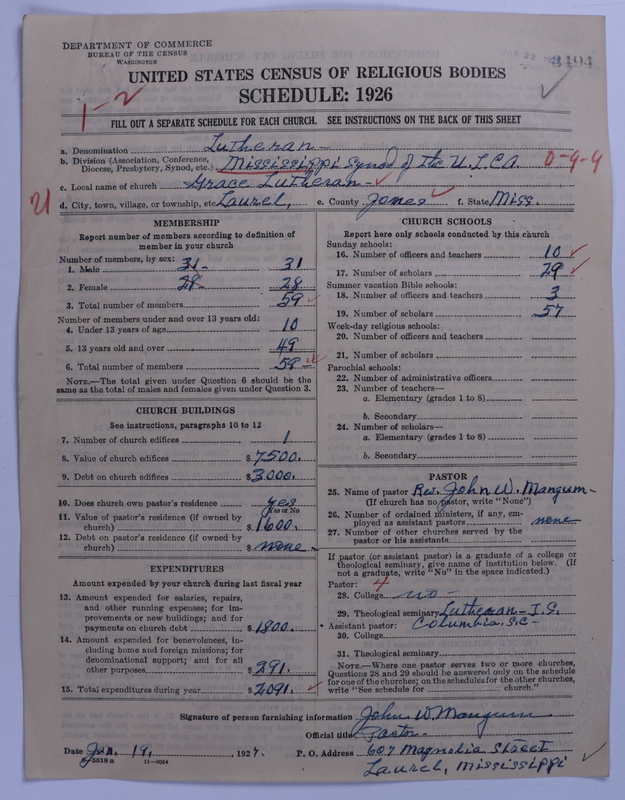 DEPARTMENT OF COMMERCE
BUREAU OF THE CENSUS
WASHINGTON
JAN 22
UNITED STATES CENSUS OF RELIGIOUS BODIES
SCHEDULE: 1926
1-2
FILL OUT A SEPARATE SCHEDULE FOR EACH CHURCH. SEE INSTRUCTIONS ON THE BACK OF THIS SHEET
a. Denomination Lutheran-
b. Division (Association, Conference,
Diocese, Presbytery, Synod, etc.) Mississippi Synod of the U.L.C.A. 0-9-9
c. Local name of church Grace Lutheran-
d. City, town, village, or township, etc Laurel, e. County Jones f. State Miss.
MEMBERSHIP
Report number of members according to definition of
member in your church
Number of members, by sex:
1. Male 31- 31
2. Female 28- 28
3. Total number of members 59
Number of members under and over 13 years old:
4. Under 13 years of age 10
5. 13 years old and over 49
6. Total number of members 59
NOTE.—The total given under Question 6 should be the
same as the total of males and females given under Question 3.
CHURCH BUILDINGS
See instructions, paragraphs 10 to 12
7. Number of church edifices 1
8. Value of church edifices $7500.
9. Debt on church edifices $3000.
10. Does church own pastor's residence yes
Yes or No
11. Value of pastor's residence (if owned by
church) $1600.
12. Debt on pastor's residence (if owned by
church) $none-
EXPENDITURES
Amount expended by your church during last fiscal year
13. Amount expended for salaries, repairs,
and other running expenses; for im-
provements or new buildings; and for
payments on church debt $1800.
14. Amount expended for benevolences, in-
cluding home and foreign missions; for
denominational support; and for all
other purposes $291.
15. Total expenditures during year $2091.
CHURCH SCHOOLS
Report here only schools conducted by this church
Sunday schools:
16. Number of officers and teachers 10
17. Number of scholars 79
Summer vacation Bible schools:
18. Number of officers and teachers 3
19. Number of scholars 57
Week-day religious schools:
20. Number of officers and teachers
21. Number of scholars
Parochial schools:
22. Number of administrative officers
23. Number of teachers—
a. Elementary (grades 1 to 8)
b. Secondary
24. Number of scholars—
a. Elementary (grades 1 to 8)
b. Secondary
PASTOR
25. Name of pastor Rev. John W. Mangum-
(If church has no pastor, write "None")
26. Number of ordained ministers, if any, em-
ployed as assistant pastors none
27. Number of other churches served by the
pastor or his assistants
If pastor (or assistant pastor) is a graduate of a college or
theological seminary, give name of institution below. (If
not a graduate, write "No" in the space indicated.)
Pastor: 4
28. College no-
29. Theological seminary Lutheran-T.S.
Assistant pastor: Columbia, S.C-
30. College
31. Theological seminary
NOTE.—Where one pastor serves two or more churches,
Questions 28 and 29 should be answered only on the schedule
for one of the churches; on the schedules for the other churches,
write "See schedule for church."
Signature of person furnishing information John W. Mangum
Official title Pastor-
Date Jan, 19, 1927. P. O. Address 607 Magnolia Street
Laurel, Mississippi
8-5518 a 11-9054